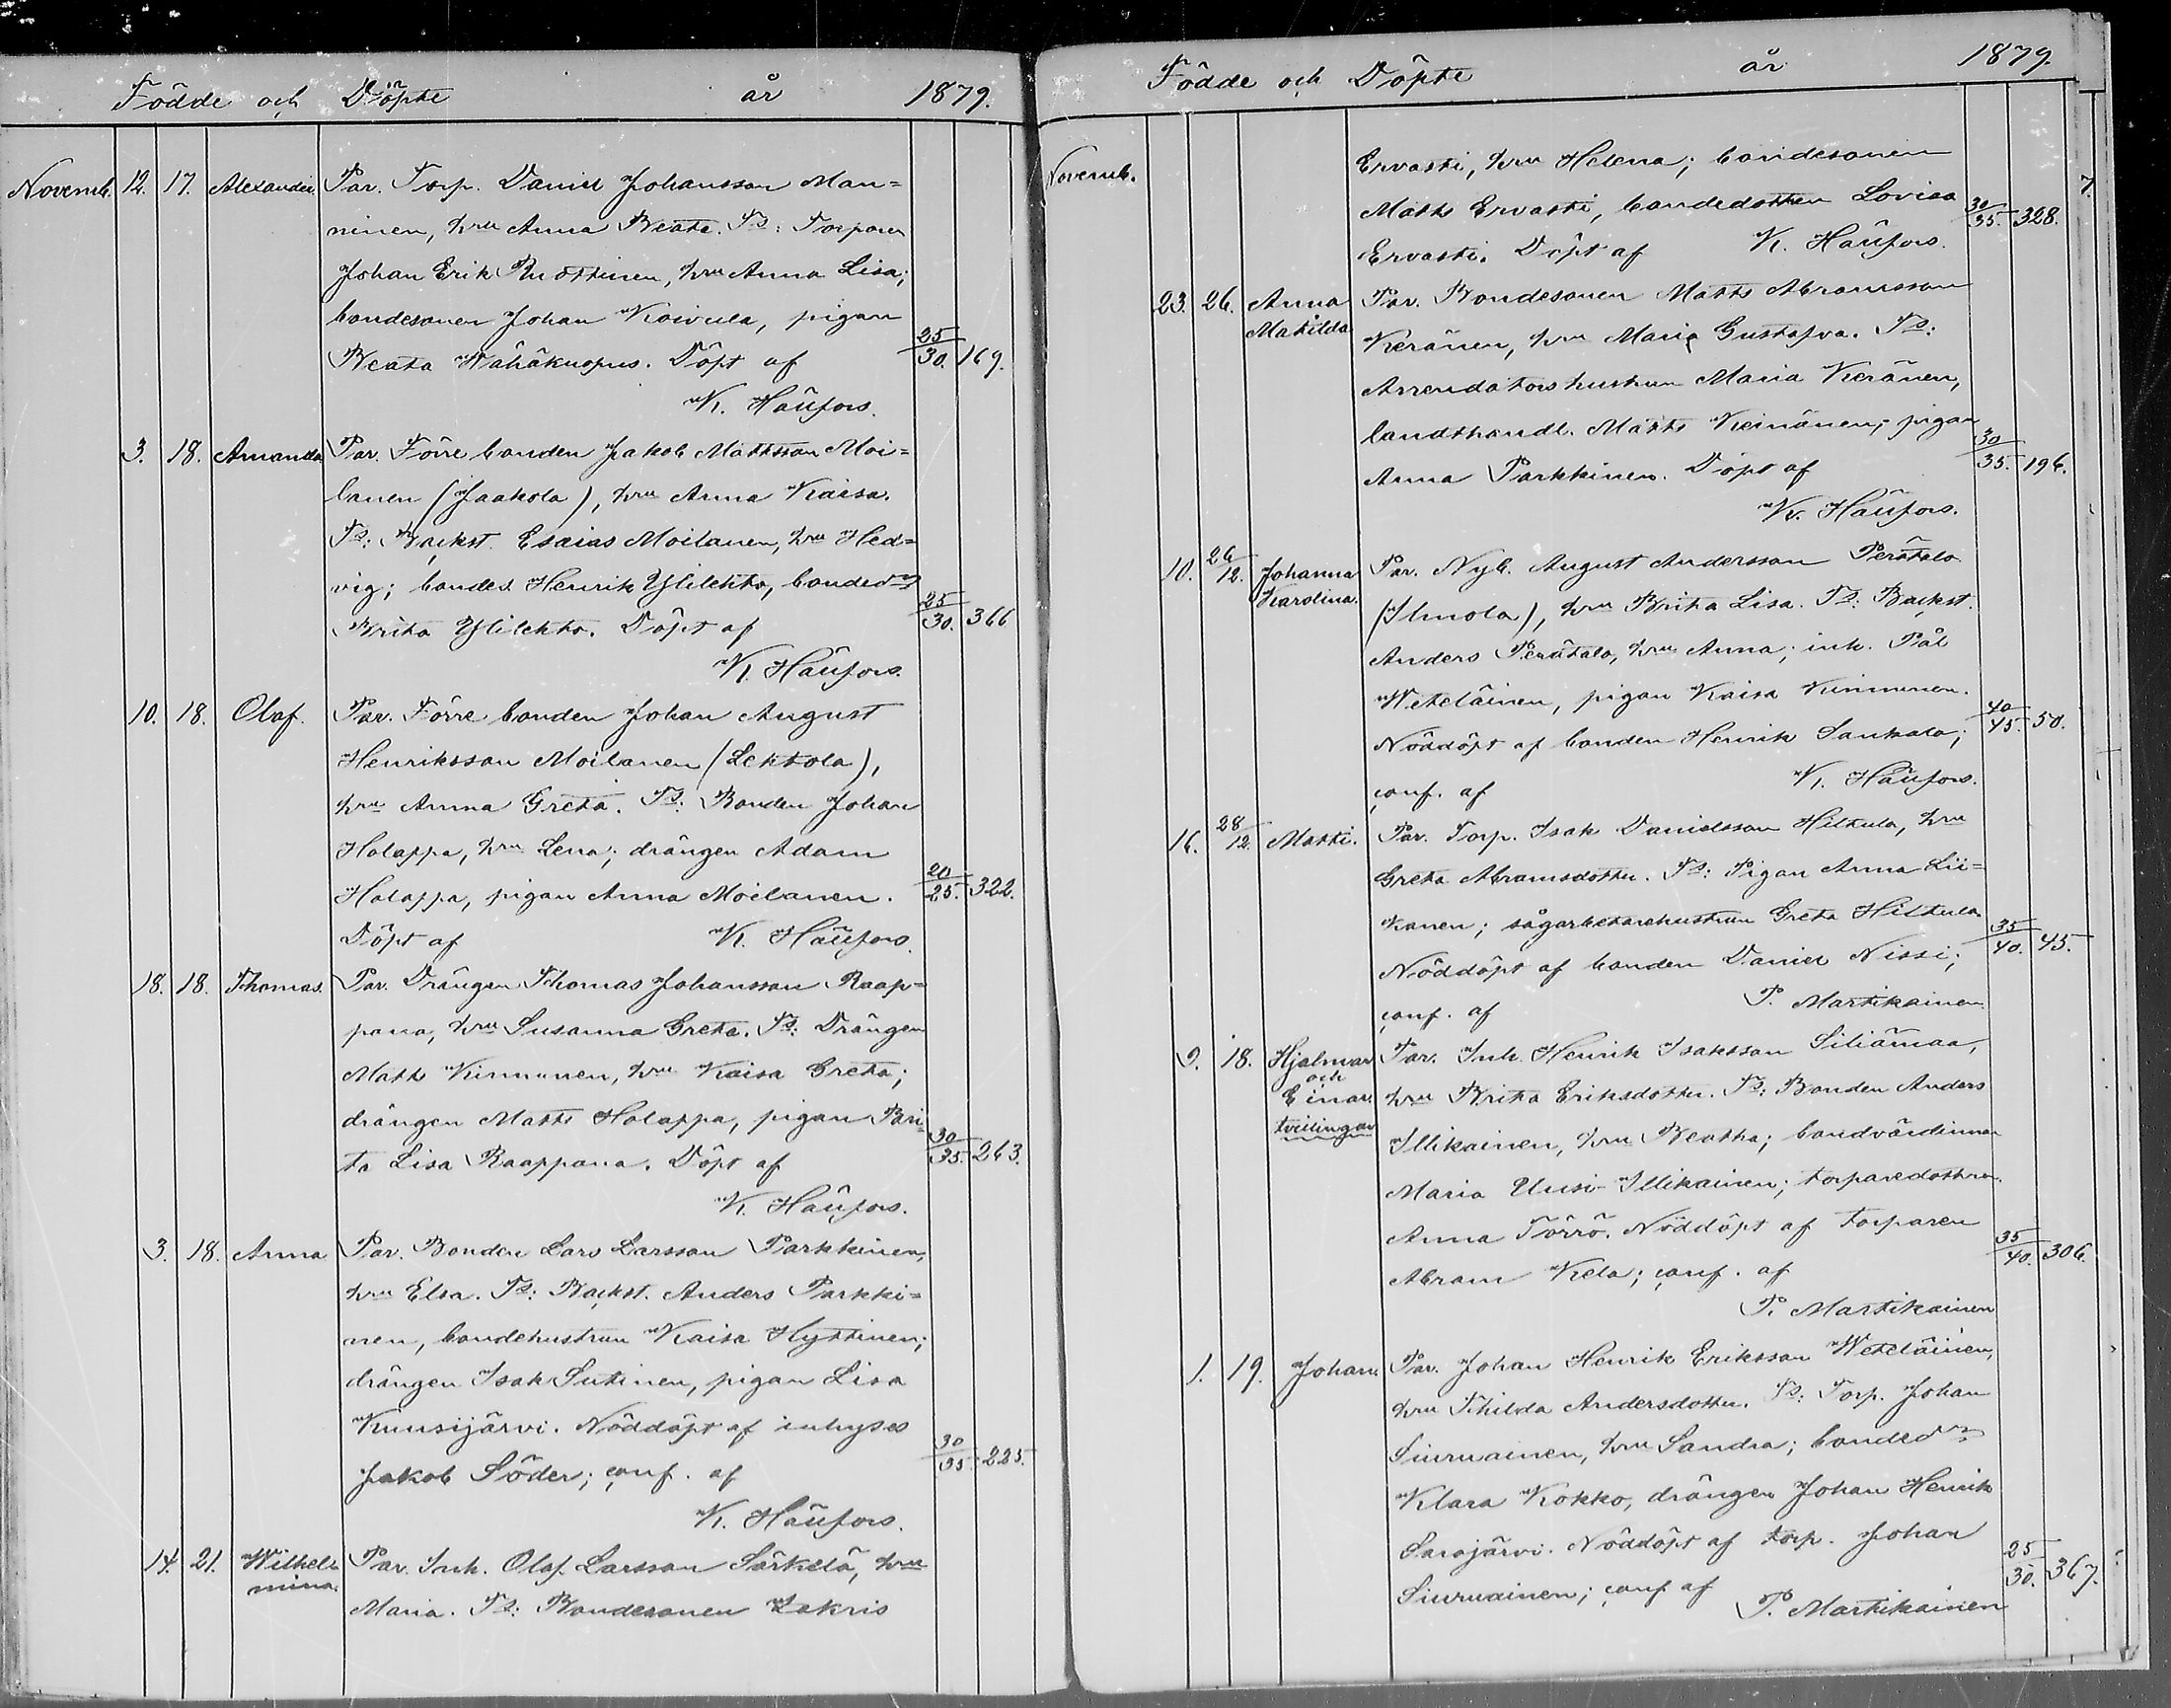 Födde och Döpte år 1879.
Novemb. 12. 17. Alexander. Par. Torp. Daniel Johansson Man=
ninen, hru Anna Beata. Ts: Torparen
Johan Erik Ruottinen, hru Anna Lisa;
bondesonen Johan Koivula, pigan
Beata Wähäkuopus. Döpt af 25/30. 169.
K. Häüfors.
3. 18. Amanda Par. Förre bonden Jakob Mattsson Moi=
lanen (Jaakola), hru Anna Kaisa.
Ts: Backst. Esaias Moilanen, hru Hed=
vig; bondes. Henrik Ylilehto, bonded.
Brita Ylilehto. Döpt af 25/30. 366
K. Häüfors.
10. 18. Olaf. Par. Förre bonden Johan August
Henriksson Moilanen (Lehtola),
hru Anna Greta. Ts: Bonden Johan
Holappa, hru Lena; drängen Adam
Holappa, pigan Anna Moilanen. 20/25. 322.
Döpt af K. Häüfors.
18. 18. Thomas. Par. Drängen Thomas Johansson Raap=
pana, hru Susanna Greta. Ts: Drängen
Matts Kinnunen, hru Kaisa Greta;
drängen Matts Holappa, pigan Bri=
ta Lisa Raappana. Döpt af 30/35. 263.
K. Häüfors.
3. 18. Anna Par. Bonden Lars Larsson Parkkinen,
hru Elsa. Ts: Backst. Anders Parkki=
nen, bondehustrun Kaisa Hyttinen;
drängen Isak Sutinen, pigan Lisa
Kuusijärvi. Nöddöpt af inhyses
Jakob Söder; conf. af 30/35. 225.
K. Häüfors.
14. 21. Wilhel= Par. Inh. Olof Larsson Särkelä, hru
mina. Maria. Ts: Bondesonen Zakris
Födde och Döpte år 1879.
Novemb. Ervasti, hru Helena; bondesonen
Matts Ervasti, bondedottren Lovisa 30/35. 328.
Ervasti. Döpt af K. Häüfors.
23. 26. Anna Par. Bondesonen Matts Abramsson
Matilda Keränen, hru Maria Gustafva. Ts:
Arrendators hustrun Maria Keränen,
landthandl. Matts Keinänen; pigan
Anna Parkkinen. Döpt af 30/35. 196.
K. Häüfors.
10. 26/12. Johanna Par. Nyb. August Andersson Perätalo
Karolina. (Ilmola), hru Brita Lisa. Ts: Backst.
Anders Perätalo, hru Anna; inh. Pål
Weteläinen, pigan Kaisa Kinnunen.
Nöddöpt af bonden Henrik Sankala; 40/45. 50.
conf. af K. Häüfors.
16. 28/12. Matti. Par. Torp. Isak Danielsson Hiltula, hru
Greta Abramsdotter. Ts: Pigan Anna Lii=
kanen; sågarbetarehustrun Greta Hiltula
Nöddöpt af bonden Daniel Nissi; 35/40. 45.
conf. af P. Martikainen.
9. 18. Hjalmar Par. Inh. Henrik Isaksson Siliämaa,
och
Einar. hru Brita Eriksdotter. Ts: Bonden Anders
tvillingar Illikainen, hru Beatha; bondvärdinnan
Maria Uusi-Illikainen; torparedottren.
Anna Törrö. Nöddöpt af torparen
Abram Kela; conf. af 35/40. 306.
P. Martikainen
1. 19. Johan Par. Johan Henrik Eriksson Weteläinen,
hru Thilda Andersdotter. Ts: Torp. Johan
Siuruainen, hru Sandra; bonded.
Klara Kokko, drängen Johan Henrik
Sarajärvi. Nöddöpt af torp. Johan
Siuruainen; conf. af 25/30. 367.
P. Martikainen
7.